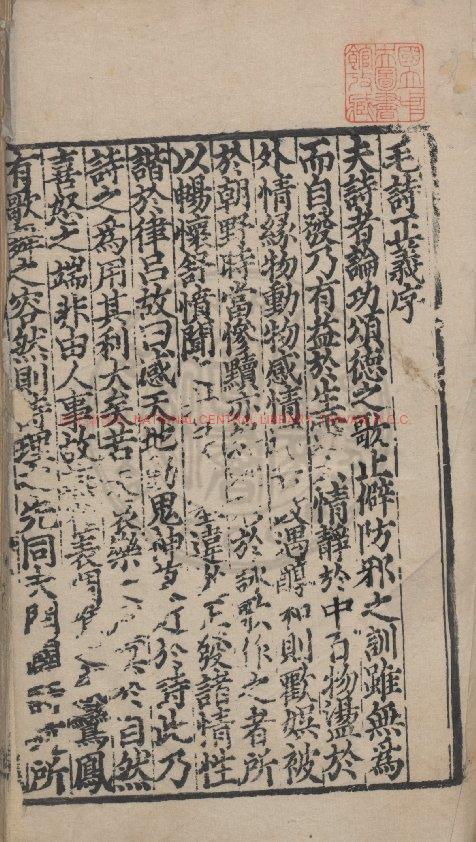 國立中
央圖書
館收藏
毛詩正義序
夫詩者論功頌德之歌止僻防邪之訓雖無為
而自發乃有益於生六情靜於中百物盪於
外情緣物動物感情政遇醇和則歡娛被
於朝野時當慘黷亦於詠歌作之者所
以暢懷舒憤聞違從正發諸情性
諧於律呂故曰感天地動鬼神莫近於詩此乃
詩之為用其利大矣若哀樂於自然
喜怒之端非由人事故表鸞鳳
有歌舞之容然則詩理之先同夫開所
NATIONAL CENTRAL LIBRARY, TAIWAN, R.O.C.